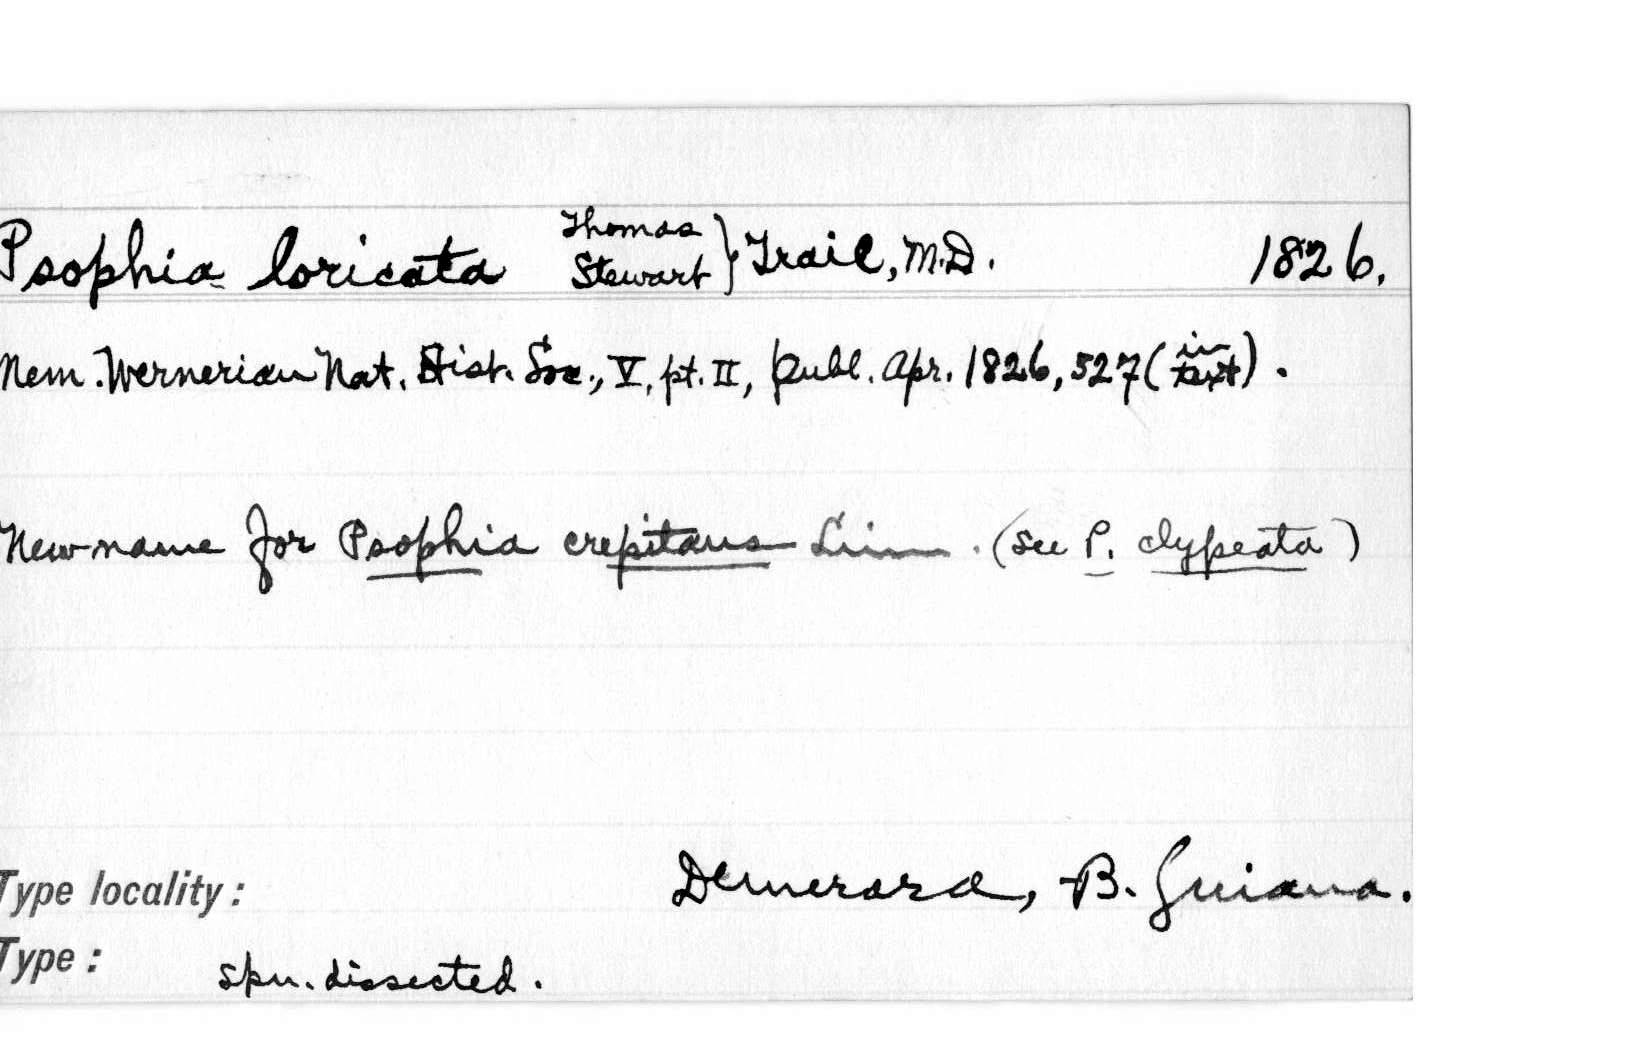 Psophia loricata Thomas Stewart } Trail, M.D. 1826.
Mem. Wernerian Nat. Hist. Soc., V, pt. II, publ. Apr. 1826, 527 (in text).
New name for Psophia crepitans Linn. (see P. clypeata)
Type locality: Demerara, B. Guiana.
Type: spn. dissected.